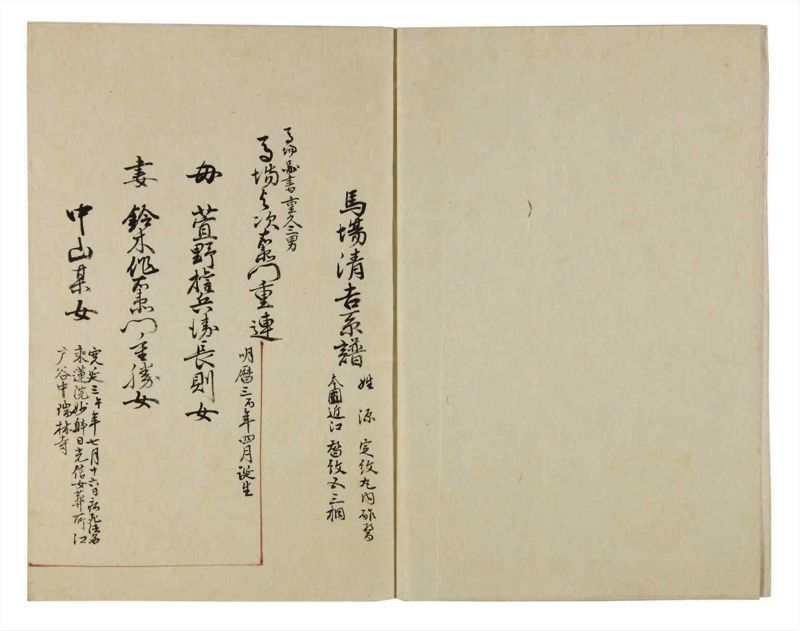 馬場清吉系譜
姓 源 定紋丸内酢漿
本國近江 替紋五三桐
馬場圖書重久三男
馬場与次右衛門重連
明暦三酉年四月誕生
母 萱野権兵衛長則女
妻 鈴木作右衛門重勝女
中山某女
寛延三午年七月十六日病死法名
来蓮院妙 日光信女葬所江
戸谷中瑞林寺